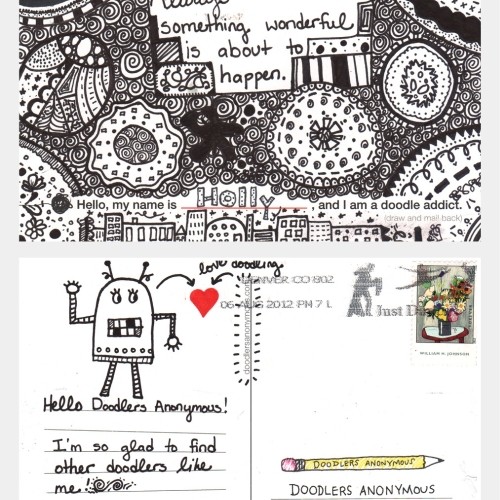 something wonderful
is about to
happen.
Hello, my name is Holly and I am a doodle addict.
(draw and mail back)
love doodling
DENVER CO 802
05 AUG 2012 PM 7 L
Just D
doodlersanonymous.com
WILLIAM H. JOHNSON
Hello Doodlers Anonymous!
I'm so glad to find
other doodlers like
me!
DOODLERS ANONYMOUS
DOODLERS ANONYMOUS